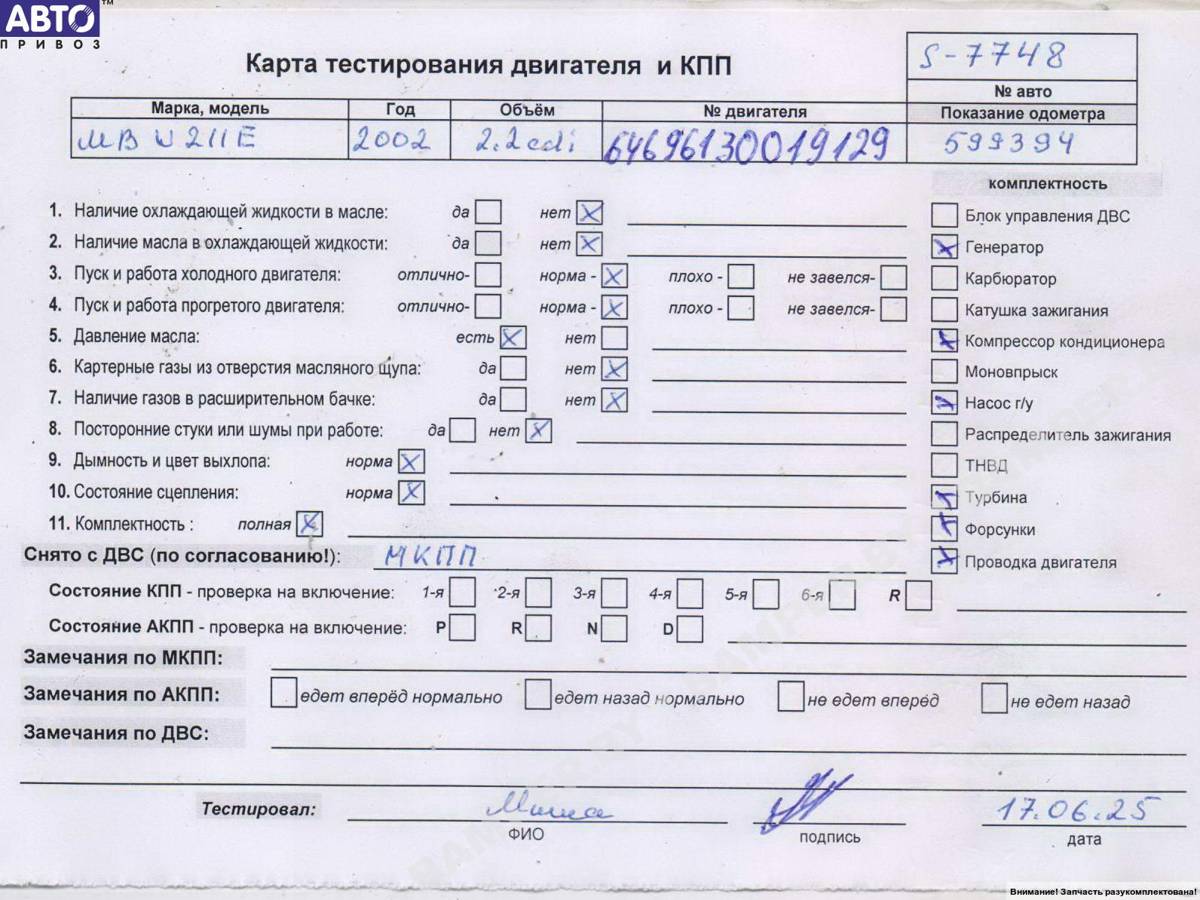 АВТО™
ПРИВОЗ
Карта тестирования двигателя и КПП
S-7748
№ авто
Марка, модель Год Объём № двигателя Показание одометра
MB W211E 2002 2.2cdi 64696130019129 599394
комплектность
1. Наличие охлаждающей жидкости в масле: да нет X
Блок управления ДВС
2. Наличие масла в охлаждающей жидкости: да нет X
X Генератор
3. Пуск и работа холодного двигателя: отлично- норма - X плохо - не завелся-
Карбюратор
4. Пуск и работа прогретого двигателя: отлично- норма - X плохо - не завелся-
Катушка зажигания
5. Давление масла: есть X нет
X Компрессор кондиционера
6. Картерные газы из отверстия масляного щупа: да нет X
Моновпрыск
7. Наличие газов в расширительном бачке: да нет X
X Насос г/у
8. Посторонние стуки или шумы при работе: да нет X
Распределитель зажигания
9. Дымность и цвет выхлопа: норма X
ТНВД
10. Состояние сцепления: норма X
X Турбина
11. Комплектность : полная X
X Форсунки
Снято с ДВС (по согласованию!): МКПП
X Проводка двигателя
Состояние КПП - проверка на включение: 1-я 2-я 3-я 4-я 5-я 6-я R
Состояние АКПП - проверка на включение: P R N D
Замечания по МКПП:
Замечания по АКПП: едет вперёд нормально едет назад нормально не едет вперёд не едет назад
Замечания по ДВС:
Тестировал: Миша 17.06.25
ФИО подпись дата
Внимание! Запчасть разукомплектована!